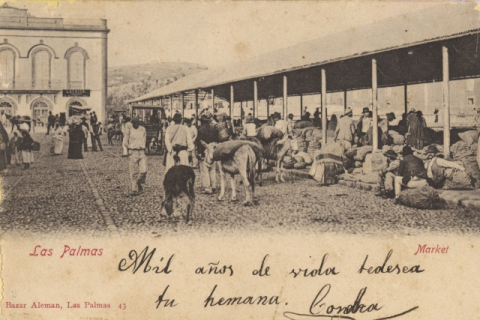 Las Palmas
Market
Mil años de vida te desea
tu hemana. Concha
Bazar Aleman, Las Palmas 43